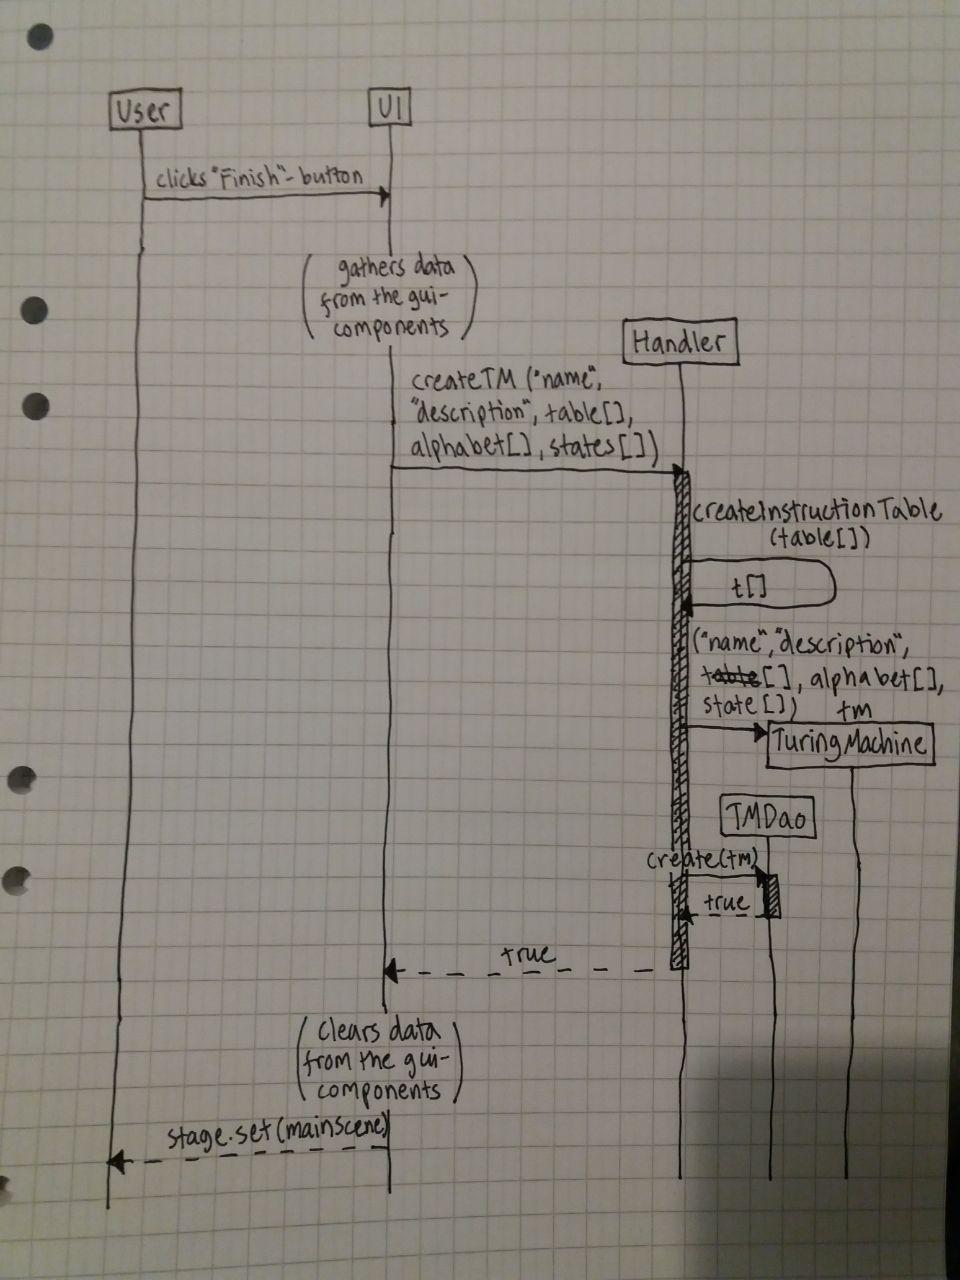 User
UI
clicks "Finish"-button
gathers data
from the gui-
components
Handler
createTM ("name",
"description", table[],
alphabet[], states[])
createInstructionTable
(table[])
t[]
("name", "description",
table[], alphabet[],
state[])
tm
TuringMachine
TMDao
create(tm)
true
true
(clears data
from the gui-
components)
stage.set(mainScene)